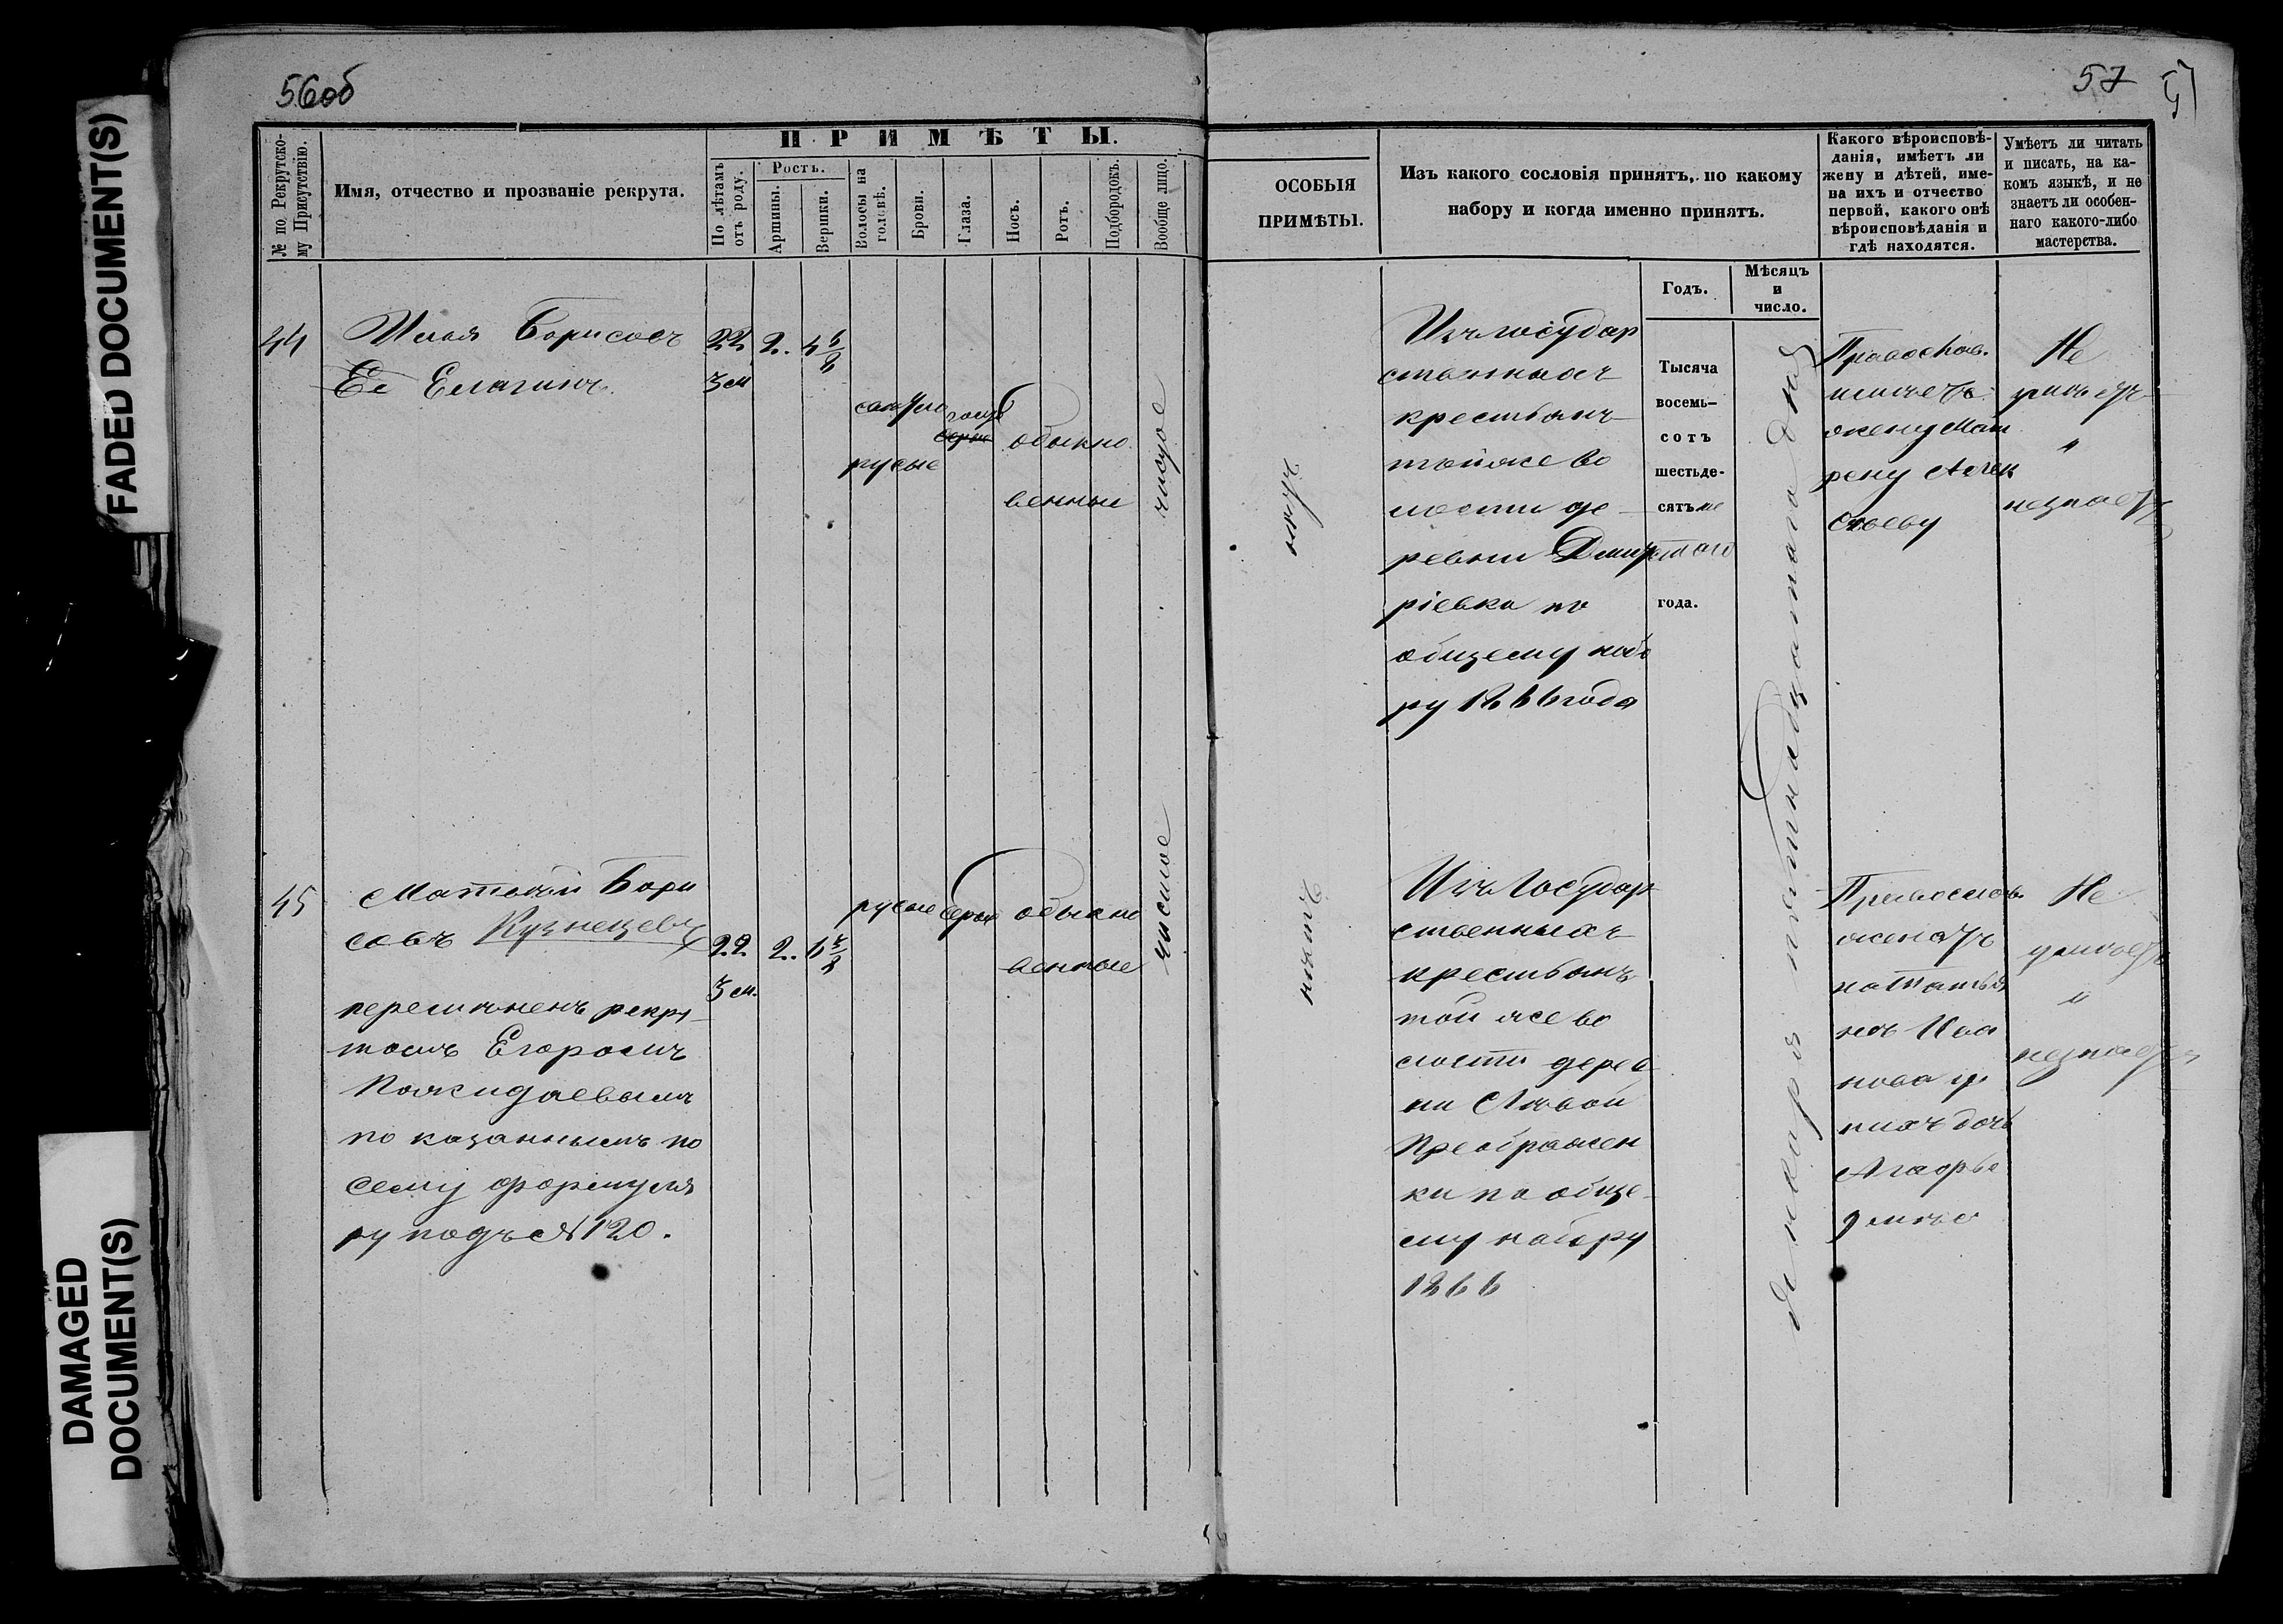 56об
57
FADED DOCUMENT(S)
DAMAGED
DOCUMENT(S)
№ по Рекрутско-
му Присутствію.
Имя, отчество и прозваніе рекрута.
ПРИМѢТЫ.
По лѣтамъ
отъ роду.
Ростъ.
Аршины.
Вершки.
Волосы на
головѣ.
Брови.
Глаза.
Носъ.
Ротъ.
Подбородокъ.
Вообще лицо.
ОСОБЫЯ
ПРИМѢТЫ.
Изъ какого сословія принятъ, по какому
набору и когда именно принятъ.
Какого вѣроисповѣ-
данія, имѣетъ ли
жену и дѣтей, име-
на ихъ и отчество
первой, какого онѣ
вѣроисповѣданія и
гдѣ находятся.
Умѣетъ ли читать
и писать, на ка-
комъ языкѣ, и не
знаетъ ли особен-
наго какого-либо
мастерства.
Годъ.
Мѣсяцъ
и
число.
44
Илья Борисовъ
Ее Елагинъ.
22
2.
русые
обыкно
венные
чистое
Изъ государ
ственныхъ
крестьянъ
тойже во
лости де
ревни Дмит
ріевки по
общему набо
ру 1866 года
Тысяча
восемь-
сотъ
шестьде-
сятъ
года.
декабря пятнадцатаго дня
Православ.
имѣетъ
жену Мат
рену
Не
умѣетъ
"
незнаетъ
45
Матвѣй Бори
совъ Кузнецевъ
перемѣненъ рекру
томъ Егоромъ
Пожидаевымъ
показаннымъ по
сему формуля
ру подъ № 120.
22
2.
русые
серые
обыкно
венные
чистое
Изъ Государ
ственныхъ
крестьянъ
той же во
лости дерев
ни Лѣвой
Преображен
ки по обще
му набору
1866
Православ.
женатъ
на Татья
нѣ Ива
новой у
нихъ дочь
Агафья
Не
умѣетъ
"
незнаетъ